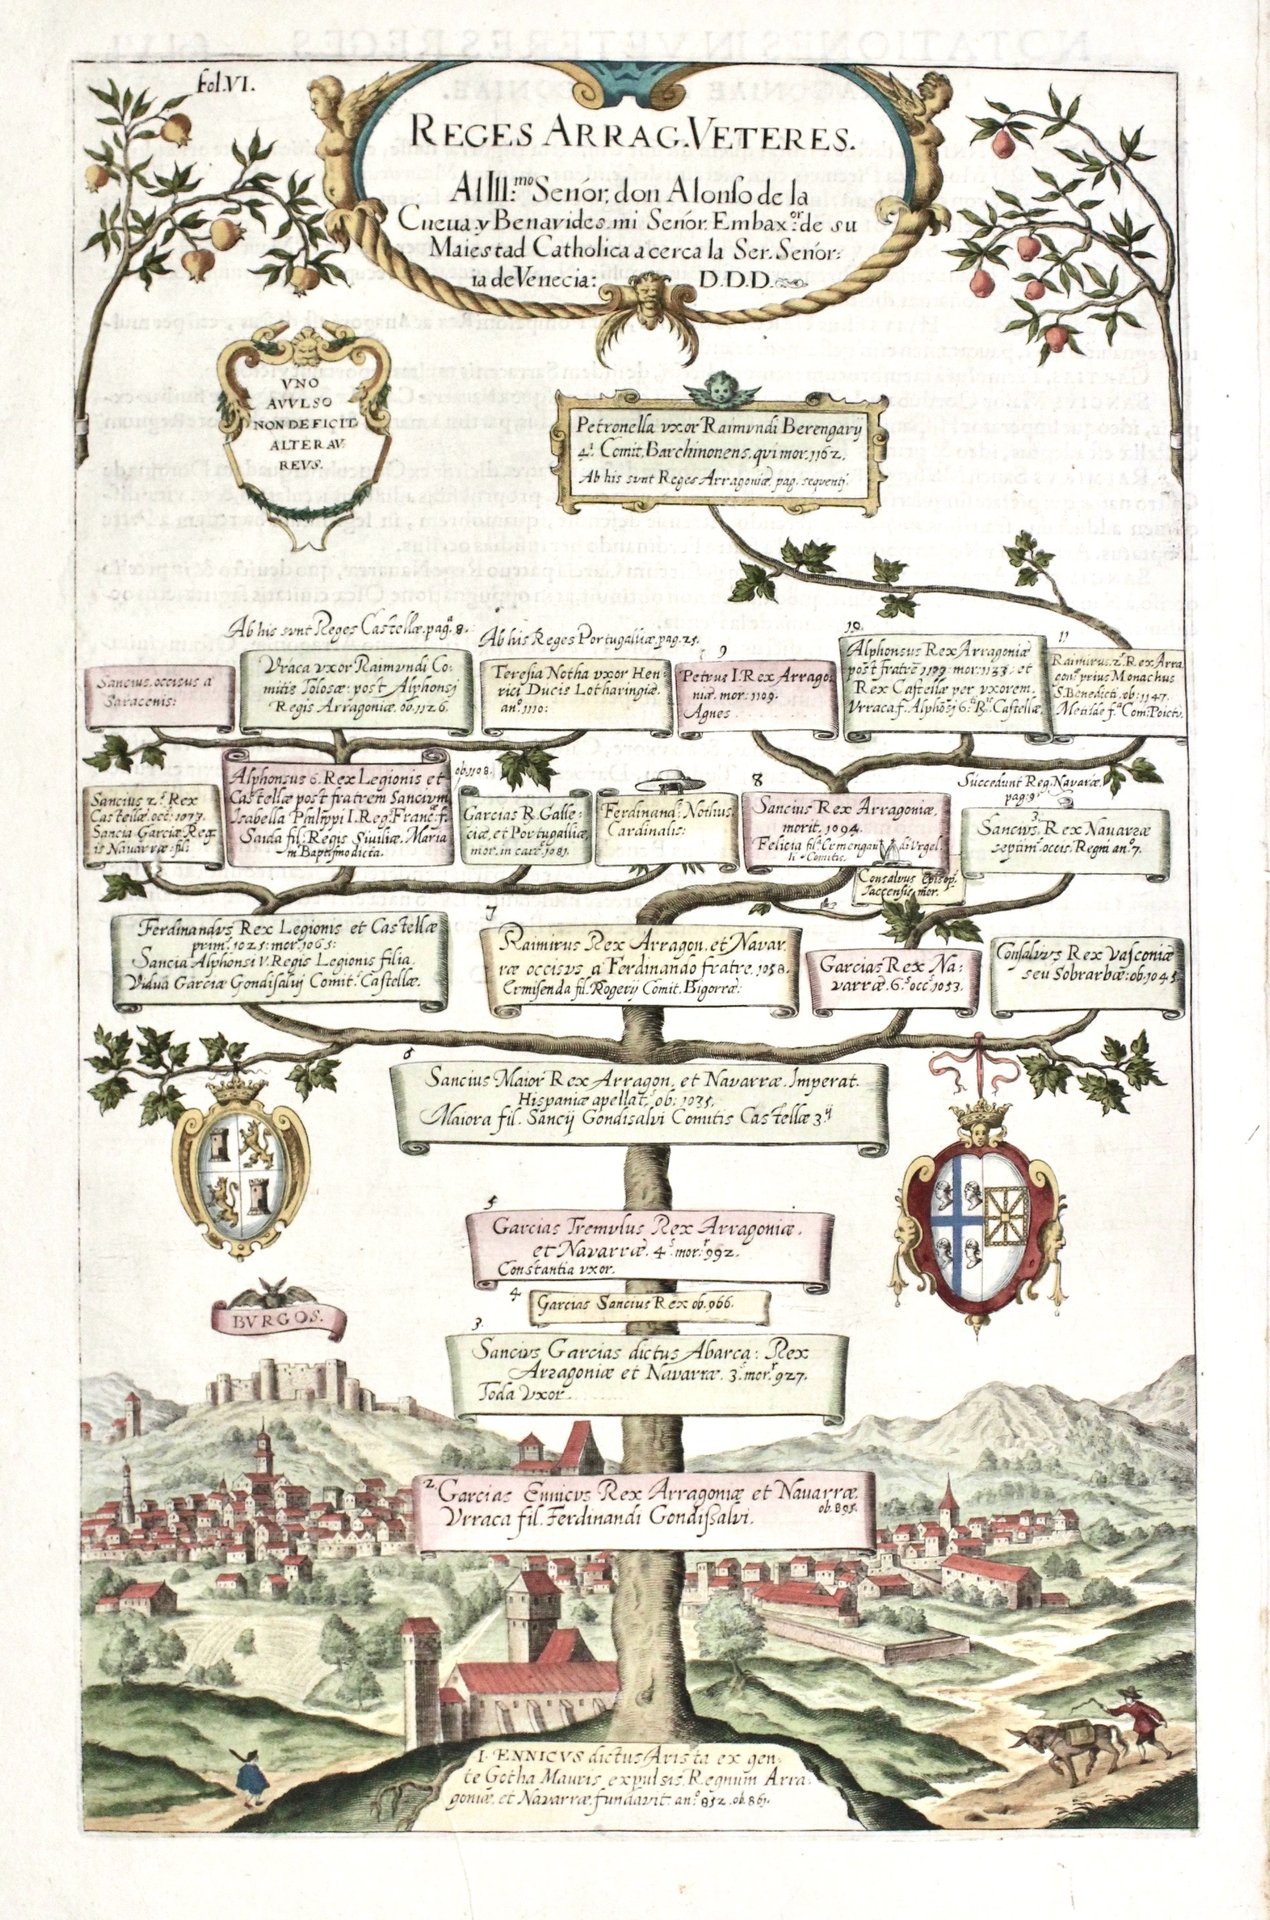 fol.VI.
REGES ARRAG. VETERES.
Al Ill.mo Señor, don Alonso de la
Cueua y Benavides mi Señor. Embax.or de su
Maiestad Catholica acerca la Ser. Señor:
ia de Venecia: D.D.D.
VNO
AVVLSO
NON DEFICIT
ALTER AV
REVS.
Petronella vxor Raimvndi Berengarij
4.i Comit. Barchinonens. qui mor. 1162.
Ab his svnt Reges Arragoniæ pag. sequenti.
Ab his svnt Reges Castellæ. pag.a 8.
Ab his Reges Portugalliæ. pag. 25.
Sancius. occisus a
Saracenis:
Vraca vxor Raimvndi Co-
mitis Tolosæ: post Alphonsi
Regis Arragoniæ. ob. 1126.
Teresia Notha vxor Hen-
rici Ducis Lotharingiæ.
an.o 1110:
9
Petrus I. Rex Arrago-
niæ. mor: 1109.
Agnes
10.
Alphonsus Rex Arragoniæ
post fratrē 1109 mor: 1133. et
Rex Castellæ per vxorem.
Vrraca f. Alphōsi 6.i R. Castellæ.
11
Raimirus. 2.s Rex Arra
goni. prius Monachus
S. Benedicti. ob: 1147.
Metilde f.a Com. Poictv.
Sancius 2.s Rex
Castellæ. occ: 1073.
Sancia Garciæ Reg
is Navarræ. fil:
Alphonsus 6. Rex Legionis et
Castellæ post fratrem Sancivm
Isabella Philippi I. Reg. Franc.æ f:
Saida fil: Regis Siuiliæ. Maria
in Baptismo dicta.
ob. 1108.
Garcias R. Galle-
ciæ, et Portugalliæ,
mor. in carc.e 1081.
Ferdinand.s Nothus
Cardinalis:
8
Sancius Rex Arragoniæ.
morit. 1094.
Felicia fil: Ermengau di Vrgel.
li Comitis.
Consalvus Episop.
Iaccensis mor.
Succedunt Reg. Navaræ
pag. 9.
3.
Sancivs. Rex Navarræ
septim.s occis. Regni an.o 7.
Ferdinandvs Rex Legionis et Castellæ
prim. 1025: mor. 1065:
Sancia Alphonsi V. Regis Legionis filia.
Vidua Garciæ Gondisalvj Comit.s Castellæ.
7
Raimirus Rex Arragon. et Navar.
ræ occisvs a Ferdinando fratre. 1058.
Ermisenda fil. Rogerij Comit. Bigorræ.
Garcias Rex Na:
varræ. 6.s occ. 1053.
Consalvvs Rex Vasconiæ
seu Sobrarbæ: ob. 1045.
6
Sancius Maior Rex Arragon. et Navarræ. Imperat.
Hispaniæ apellat. ob: 1035.
Maiora fil. Sancij Gondisalvi Comitis Castellæ 3.ij
5
Garcias Tremvlus Rex Arragoniæ.
et Navarræ. 4.s mor.r 992.
Constantia vxor.
4
Garcias Sancius Rex ob. 966.
3
Sancivs Garcias dictus Abarca: Rex
Arragoniæ et Navarræ. 3.s mor.r 927.
Toda Vxor
2.
Garcias Ennicvs Rex Arragoniæ et Nauarræ.
ob. 895.
Vrraca fil. Ferdinandi Gondissalvi.
BVRGOS.
I. ENNICVS dictus Arista ex gen-
te Gotha Mauris expulsis Regnum Arra-
goniæ, et Navarræ fundavit. an.o 852. ob. 867.